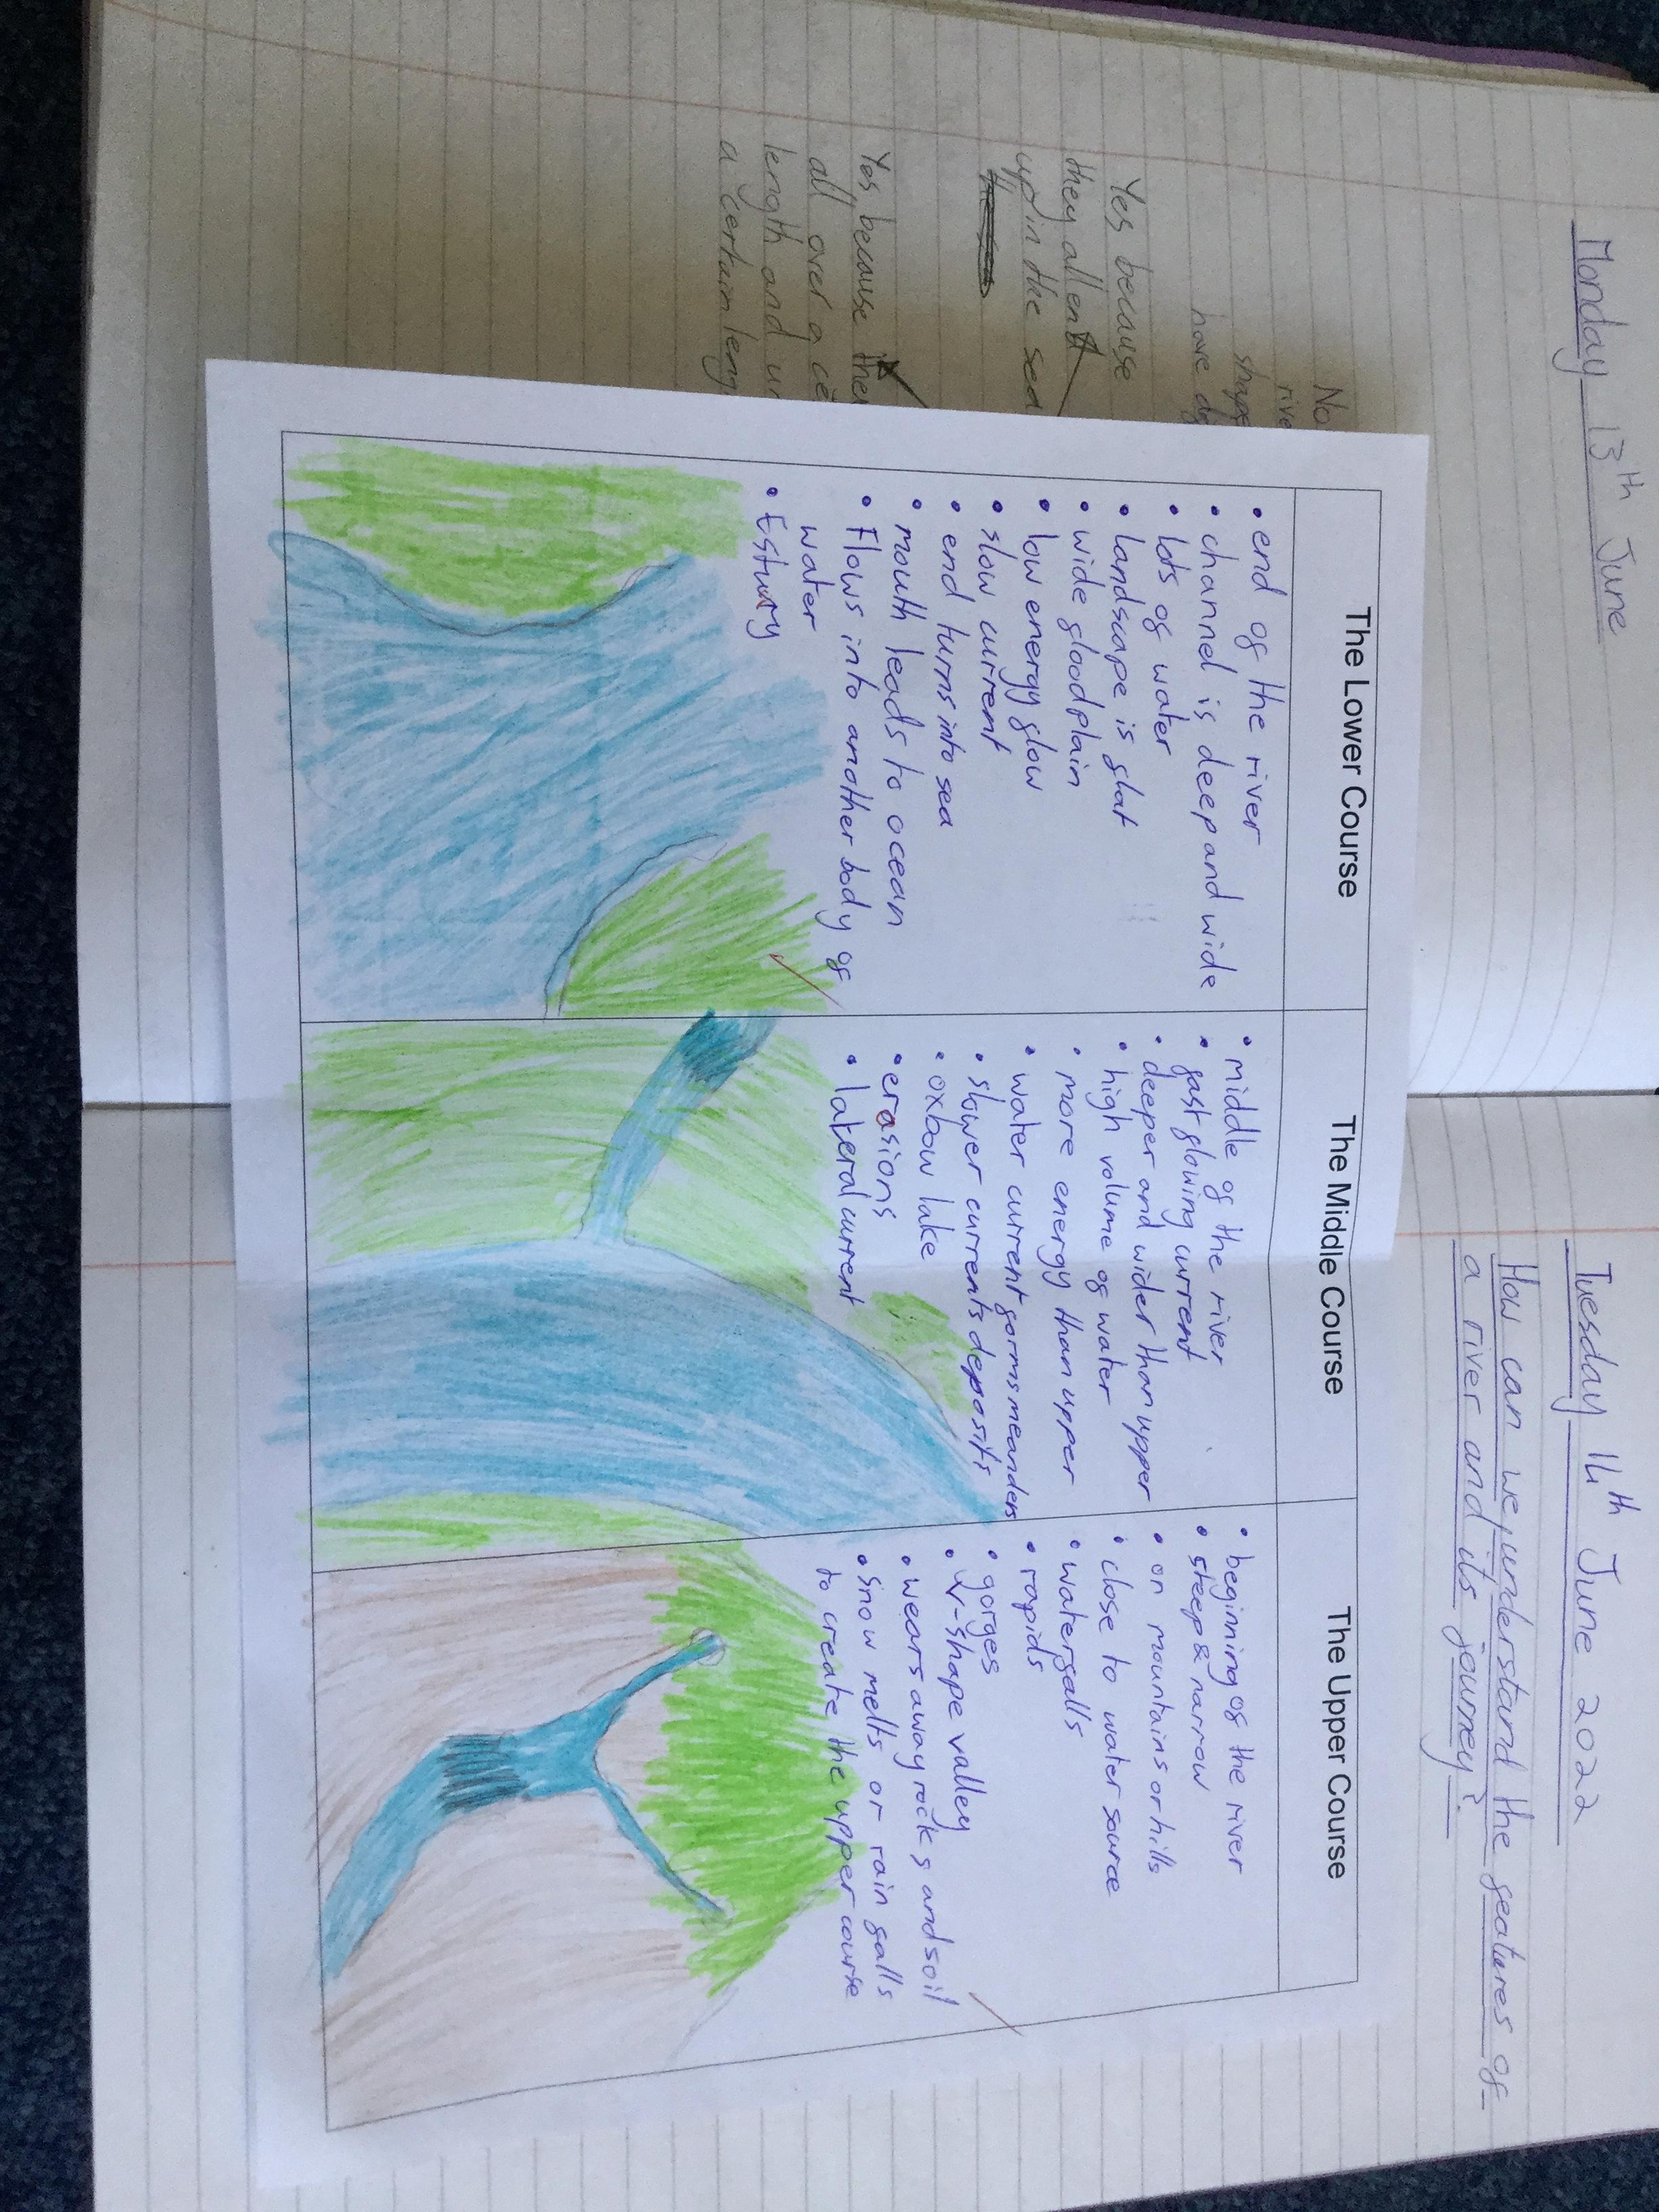 Monday 13th June
No
rive
shape
have d
Yes because
they all end
up in the sea
Yes, because
all over a ce
length and
a certain leng
Tuesday 14th June 2022
How can we understand the features of
a river and its journey?
The Lower Course
• end of the river
• channel is deep and wide
• lots of water
• landscape is flat
• wide floodplain
• low energy flow
• slow current
• end turns into sea
• mouth leads to ocean
• Flows into another body of
water
• Estuary
The Middle Course
• middle of the river
• fast flowing current
• deeper and wider than upper
• high volume of water
• more energy than upper
• water current forms meanders
• slower currents deposits
• oxbow lake
• erosions
• lateral current
The Upper Course
• beginning of the river
• steep & narrow
• on mountains or hills
• close to water source
• waterfalls
• rapids
• gorges
• v-shape valley
• wears away rocks and soil
• snow melts or rain falls
to create the upper course